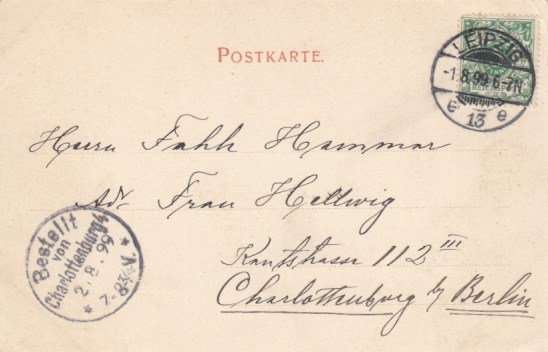 POSTKARTE.
LEIPZIG
-1.8.99 6-7N
e 13 e
Herrn Fahh Hammar
Adr Frau Hellwig
Kantstrasse 112 III
Charlottenburg b/ Berlin
Bestellt
von
Charlottenburg 4
2.8.99
* 7-8¾V. *